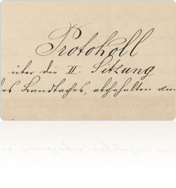 Protokoll
über die II. Sitzung
des Landtages, abgehalten am